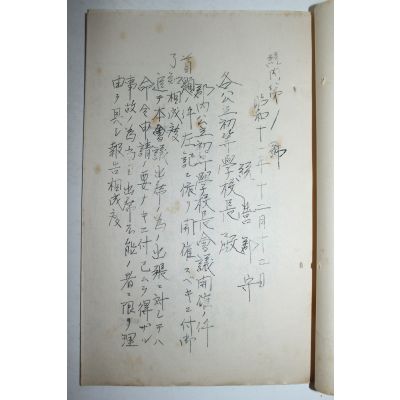 第 號
昭和十一年十二月十二日
統營郡守
各公立初等學校長殿
郡内公立初等學校長會議開催ノ件
首題ノ件左記ニ依リ開催スベキニ付御
了知相成度
追テ本會議出席ノ為ノ出張ニ対シテハ
命令申請ノ要ナキニ付已ムヲ得ザル
事故ノ為 出席不能ノ者ニ限リ理
由ヲ具シ報告相成度